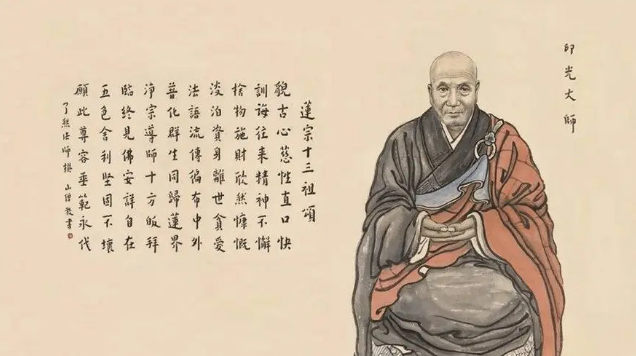 印光大師
蓮宗十三祖頌
貌古心慈性直口快
訓誨往來精神不懈
捨物施財欣然慷慨
淡泊資身離世貪愛
法語流傳徧布中外
普化群生同歸蓮界
淨宗導師十方皈拜
臨終見佛安詳自在
五色舍利堅固不壞
願此尊容垂範永代
了然法師撰 山僧書